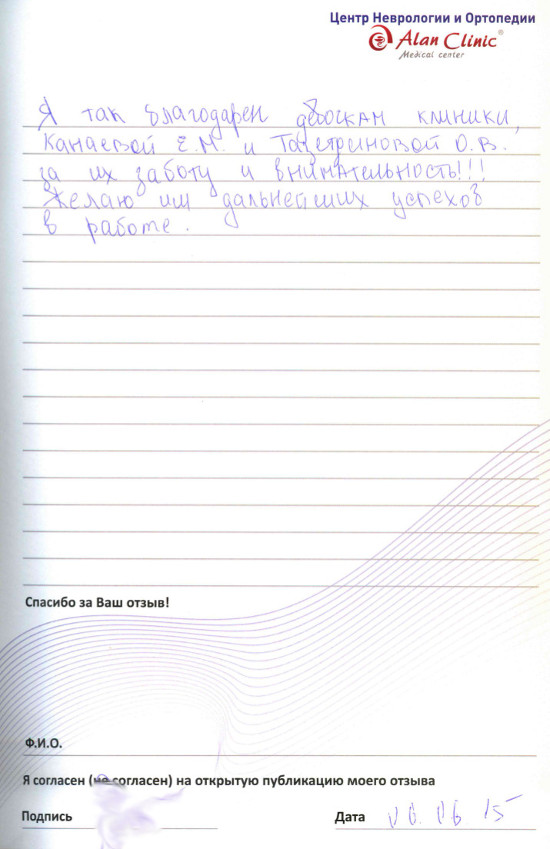 Центр Неврологии и Ортопедии
Alan Clinic®
Medical center
Я так благодарен девочкам клиники,
Канаевой Е.М. и О.В.
за их заботу и внимательность!!!
Желаю им дальнейших успехов
в работе.
Спасибо за Ваш отзыв!
Ф.И.О.
Я согласен (не согласен) на открытую публикацию моего отзыва
Подпись Дата 06 15